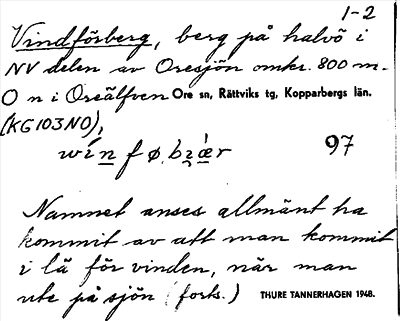 1-2
Vindförberg, berg på halvö i
NV delen av Oresjön omkr. 800 m.
O n i Oreälfven Ore sn, Rättviks tg, Kopparbergs län.
(KG103NO),
97
Namnet anses allmänt ha
kommit av att man kommit
i lä för vinden, när man
ute på sjön (forts.) THURE TANNERHAGEN 1948.